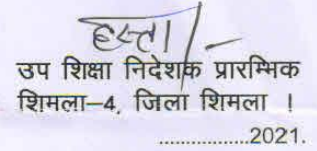 हस्ता/-
उप शिक्षा निदेशक प्रारम्भिक
शिमला–4, जिला शिमला ।
.................2021.